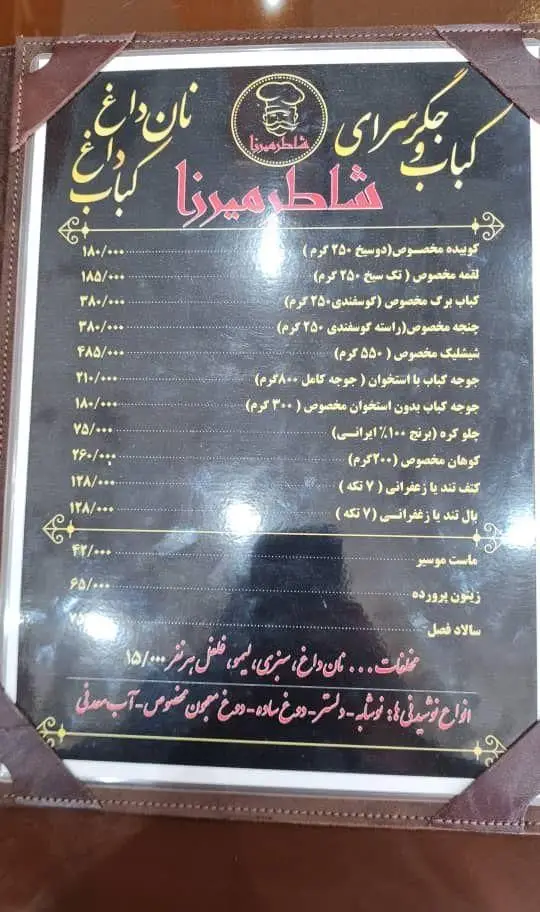 کباب و جگرسرای
شاطر میرزا
نان داغ
کباب داغ
شاطر میرزا
کوبیده مخصوص(دوسیخ ۲۵۰ گرم ) ۱۸۰/۰۰۰
لقمه مخصوص ( تک سیخ ۲۵۰ گرم) ۱۸۵/۰۰۰
کباب برگ مخصوص (گوسفندی۲۵۰ گرم) ۳۸۰/۰۰۰
چنجه مخصوص(راسته گوسفندی ۲۵۰ گرم) ۳۸۰/۰۰۰
شیشلیک مخصوص ( ۵۵۰ گرم) ۴۸۵/۰۰۰
جوجه کباب با استخوان ( جوجه کامل ۸۰۰گرم) ۲۱۰/۰۰۰
جوجه کباب بدون استخوان مخصوص ( ۳۰۰ گرم) ۱۸۰/۰۰۰
چلو کره (برنج ۱۰۰٪ ایرانی) ۷۵/۰۰۰
کوهان مخصوص (۲۰۰گرم) ۲۶۰/۰۰۰
کتف تند یا زعفرانی ( ۷ تکه ) ۱۲۸/۰۰۰
بال تند یا زغفرانی (۷ تکه ) ۱۲۸/۰۰۰
ماست موسیر ۴۲/۰۰۰
زیتون پرورده ۶۵/۰۰۰
سالاد فصل
مخلفات... نان داغ، سبزی، لیمو، فلفل هر نفر ۱۵/۰۰۰
انواع نوشیدنی ها: نوشابه - دلستر - دوغ ساده - دوغ معجون مخصوص - آب معدنی